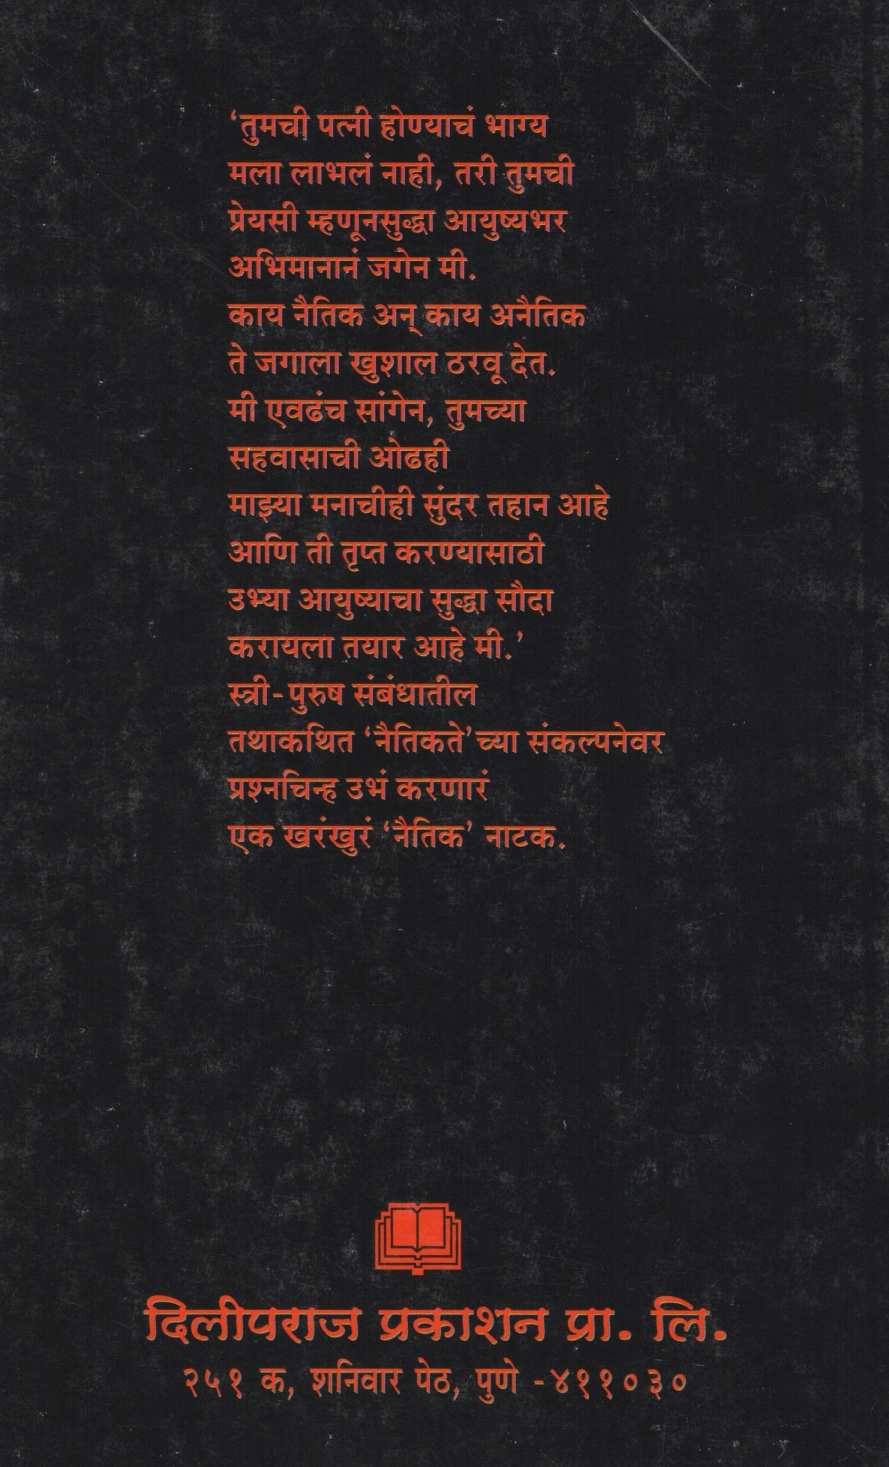 ‘तुमची पत्नी होण्याचं भाग्य
मला लाभलं नाही, तरी तुमची
प्रेयसी म्हणूनसुद्धा आयुष्यभर
अभिमानानं जगेन मी.
काय नैतिक अन् काय अनैतिक
ते जगाला खुशाल ठरवू देत.
मी एवढंच सांगेन, तुमच्या
सहवासाची ओढही
माझ्या मनाचीही सुंदर तहान आहे
आणि ती तृप्त करण्यासाठी
उभ्या आयुष्याचा सुद्धा सौदा
करायला तयार आहे मी.’
स्त्री-पुरुष संबंधातील
तथाकथित ‘नैतिकते’च्या संकल्पनेवर
प्रश्नचिन्ह उभं करणारं
एक खरंखुरं ‘नैतिक’ नाटक.
दिलीपराज प्रकाशन प्रा. लि.
२५१ क, शनिवार पेठ, पुणे -४११०३०